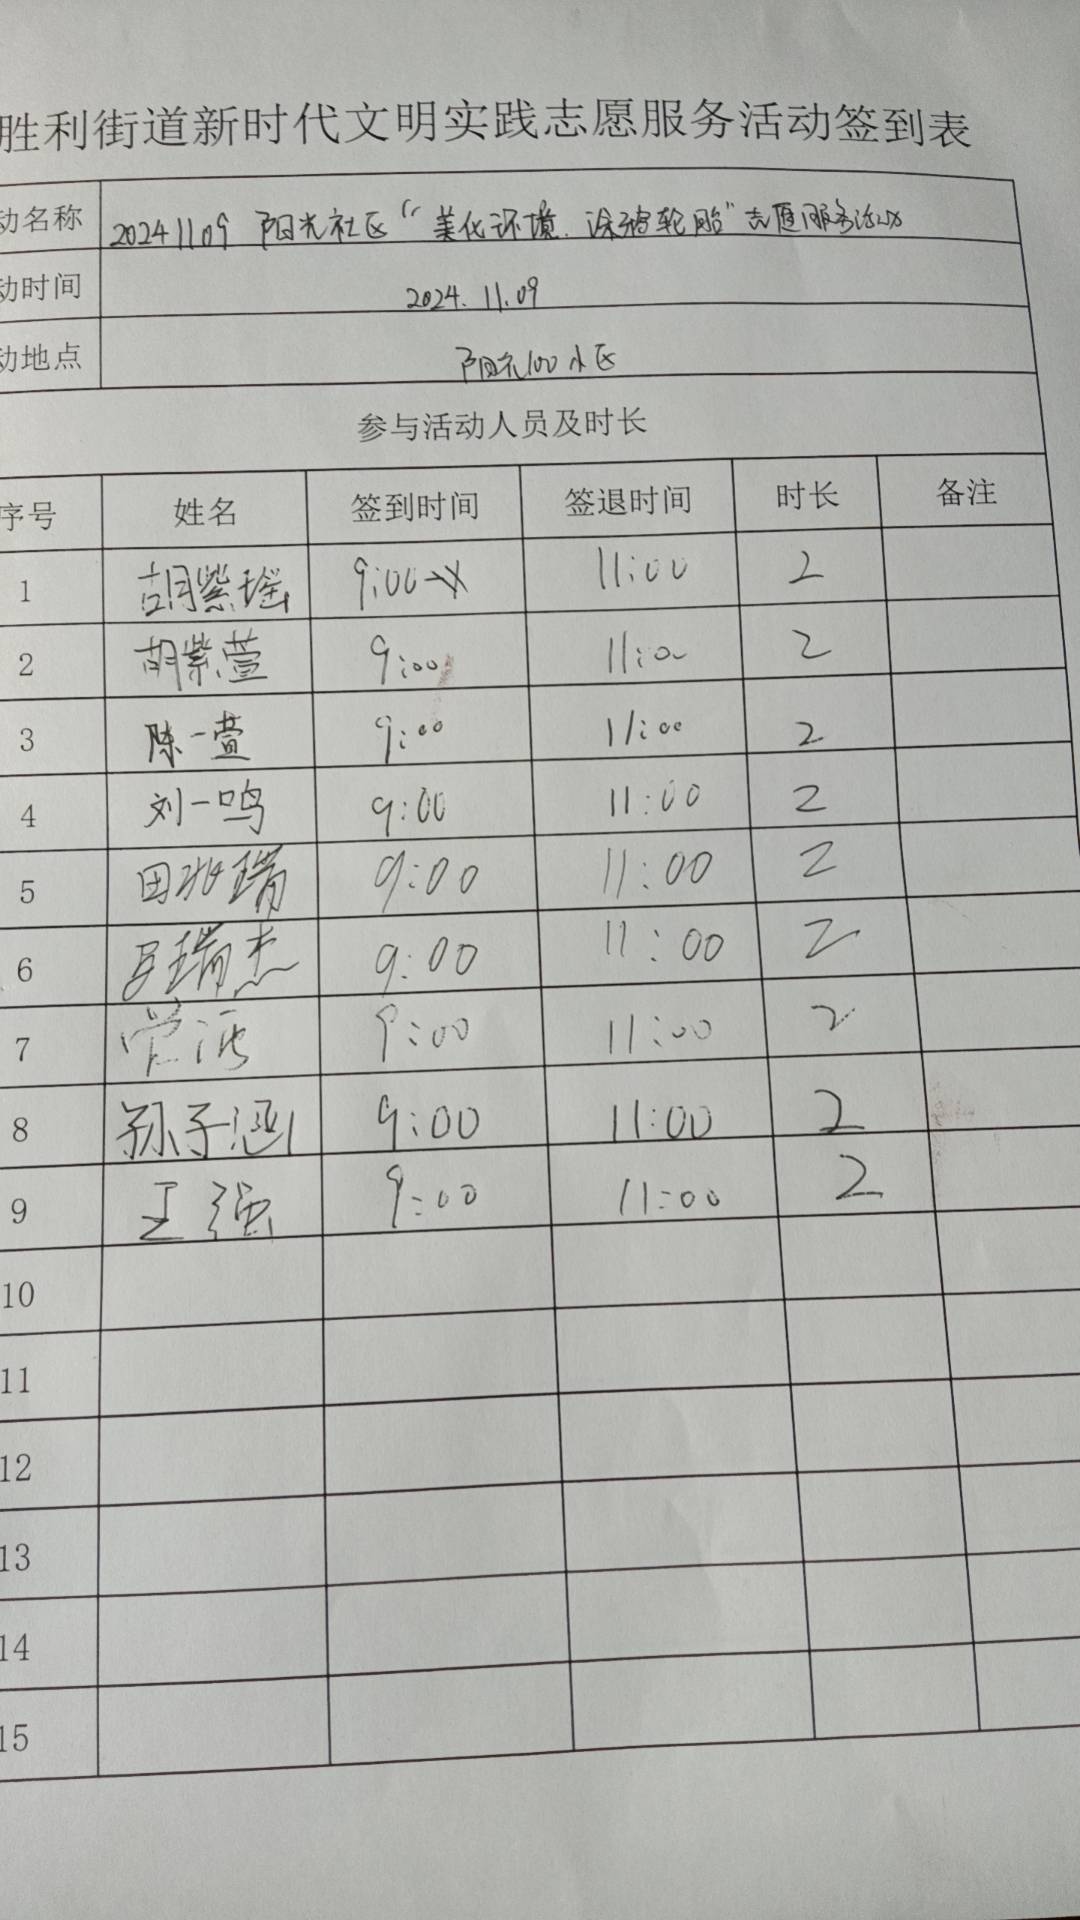 胜利街道新时代文明实践志愿服务活动签到表
动名称 20241109 阳光社区“美化环境.涂鸦轮胎”志愿服务活动
动时间 2024.11.09
动地点 阳光100小区
参与活动人员及时长
序号 姓名 签到时间 签退时间 时长 备注
1 胡紫瑶 9:00 11:00 2
2 胡紫萱 9:00 11:00 2
3 陈一萱 9:00 11:00 2
4 刘一鸣 9:00 11:00 2
5 田 瑞 9:00 11:00 2
6 瑞杰 9:00 11:00 2
7 9:00 11:00 2
8 孙子涵 9:00 11:00 2
9 王强 9:00 11:00 2
10
11
12
13
14
15